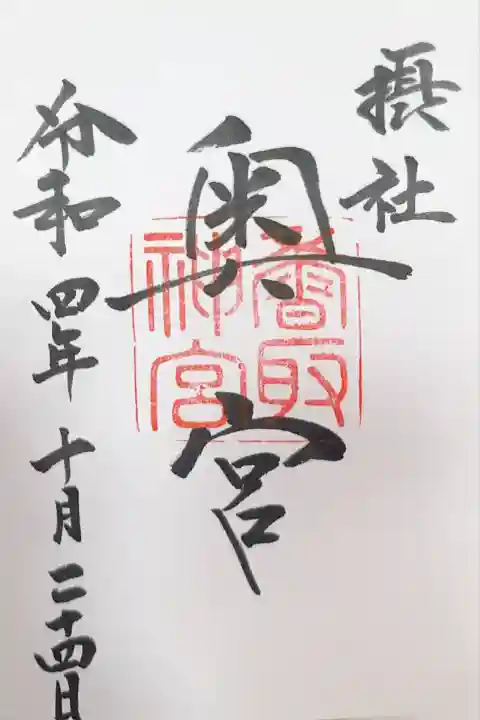 摂社
奥宮
香取
神宮
令和四年十月二十四日